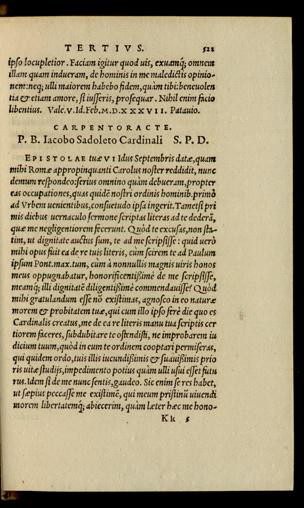 TERTIVS. 521
ipso locupletior. Faciam igitur quod uis, exuamq́; omnem
illam quam indueram, de hominis in me maledictis opinio-
nem: neq; ulli maiorem habebo fidem, quàm tibi: beneuolen
tia & etiam amore, si iusseris, prosequar. Nihil enim facio
libentius. Vale. V. Id. Feb. M. D. XXXVII. Patauio.
CARPENTORACTE.
P. B. Iacobo Sadoleto Cardinali S. P. D.
EPISTOLAE tuæ VI Idus Septembris datæ, quam
mihi Romæ appropinquanti Carolus noster reddidit, nunc
demum respondeo: serius omnino quàm debueram, propter
eas occupationes, quas quidē nostri ordinis hominib. primò
ad Vrbem uenientibus, consuetudo ipsa ingerit. Tametsi pri
mis diebus uernaculo sermone scriptas literas ad te dederā,
quæ me negligentiorem fecerunt. Quòd te excusas, non sta-
tim, ut dignitate auctus sum, te ad me scripsisse: quid uerò
mihi opus fuit ea de re tuis literis, cùm scirem te ad Paulum
ipsum Pont. max. tum, cùm à nonnullis magnis uiris honos
meus oppugnabatur, honorificentissimè de me scripsisse,
meamq́; illi dignitatē diligentissimè commendauisse? Quòd
mihi gratulandum esse nō existimas, agnosco in eo naturæ
morem & probitatem tuæ, qui cum illo ipso ferè die quo es
Cardinalis creatus, me de ea re literis manu tua scriptis cer
tiorem faceres, subdubitare te ostendisti, ne improbarem iu
dicium tuum, quòd in eum te ordinem cooptari permiseras,
qui quidem ordo, tuis illis iucundissimis & suauissimis prio
ris uitæ studijs, impedimento potius quàm ulli usui esset futu
rus. Idem si de me nunc sentis, gaudeo. Sic enim se res habet,
ut sæpius peccasse me existimē, qui meum pristinū uiuendi
morem libertatemq́; abiecerim, quàm læter hæc me hono-
Kk 5